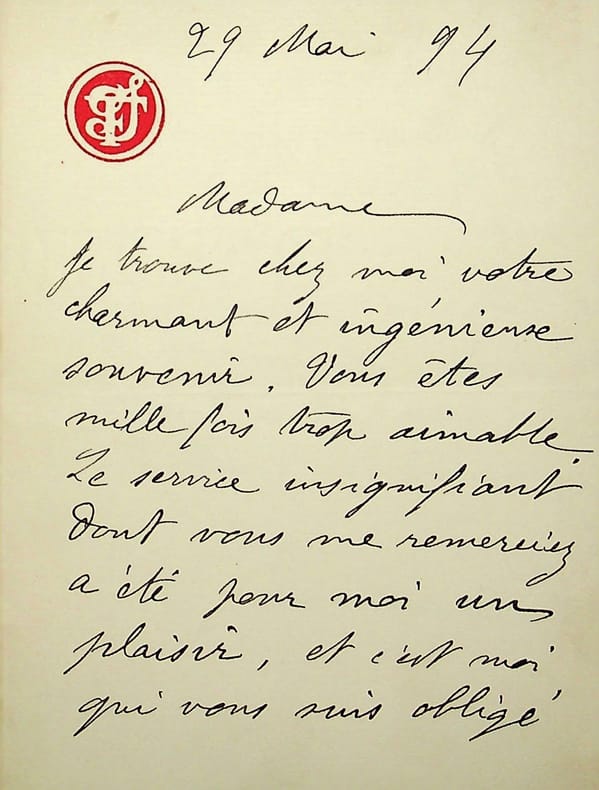 29 Mai 94
Madame
Je trouve chez moi votre
charmant et ingénieuse
souvenir. Vous êtes
mille fois trop aimable.
Le service insignifiant
dont vous me remerciez
a été pour moi un
plaisir, et c'est moi
qui vous suis obligé